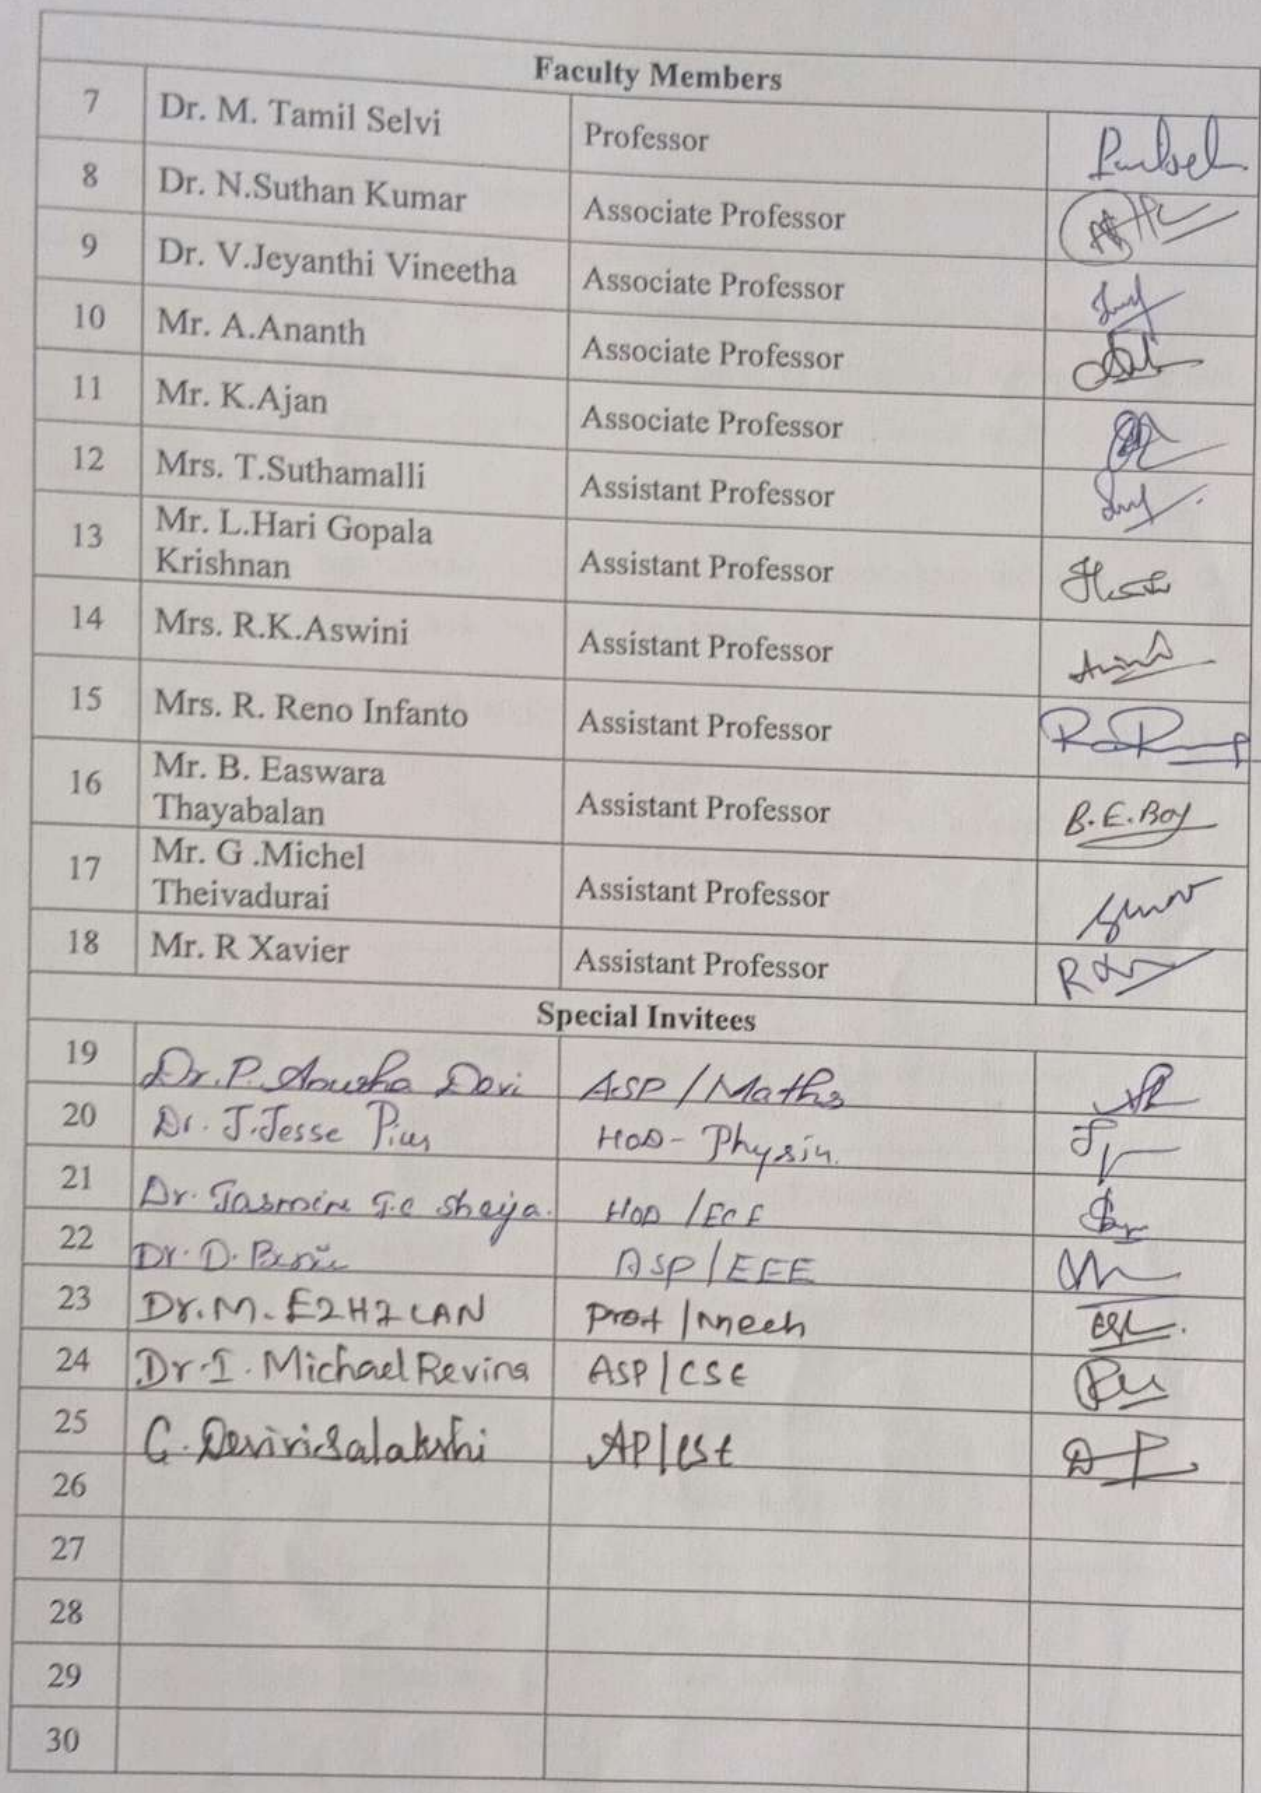 Faculty Members
7 Dr. M. Tamil Selvi Professor
8 Dr. N.Suthan Kumar Associate Professor
9 Dr. V.Jeyanthi Vineetha Associate Professor
10 Mr. A.Ananth Associate Professor
11 Mr. K.Ajan Associate Professor
12 Mrs. T.Suthamalli Assistant Professor
13 Mr. L.Hari Gopala
Krishnan Assistant Professor
14 Mrs. R.K.Aswini Assistant Professor
15 Mrs. R. Reno Infanto Assistant Professor
16 Mr. B. Easwara
Thayabalan Assistant Professor B.E.Boy
17 Mr. G .Michel
Theivadurai Assistant Professor
18 Mr. R Xavier Assistant Professor
Special Invitees
19 Dr.P. Anusha Devi ASP/Maths
20 Dr. J.Jesse Pius HOD-
21 Dr. Jasmine sheija. HOD /ECE
22 Dr. D. ASP/EEE
23 Dr.M. Prof/mech
24 Dr.I. Michael Revina ASP/CSE
25 AP/
26
27
28
29
30